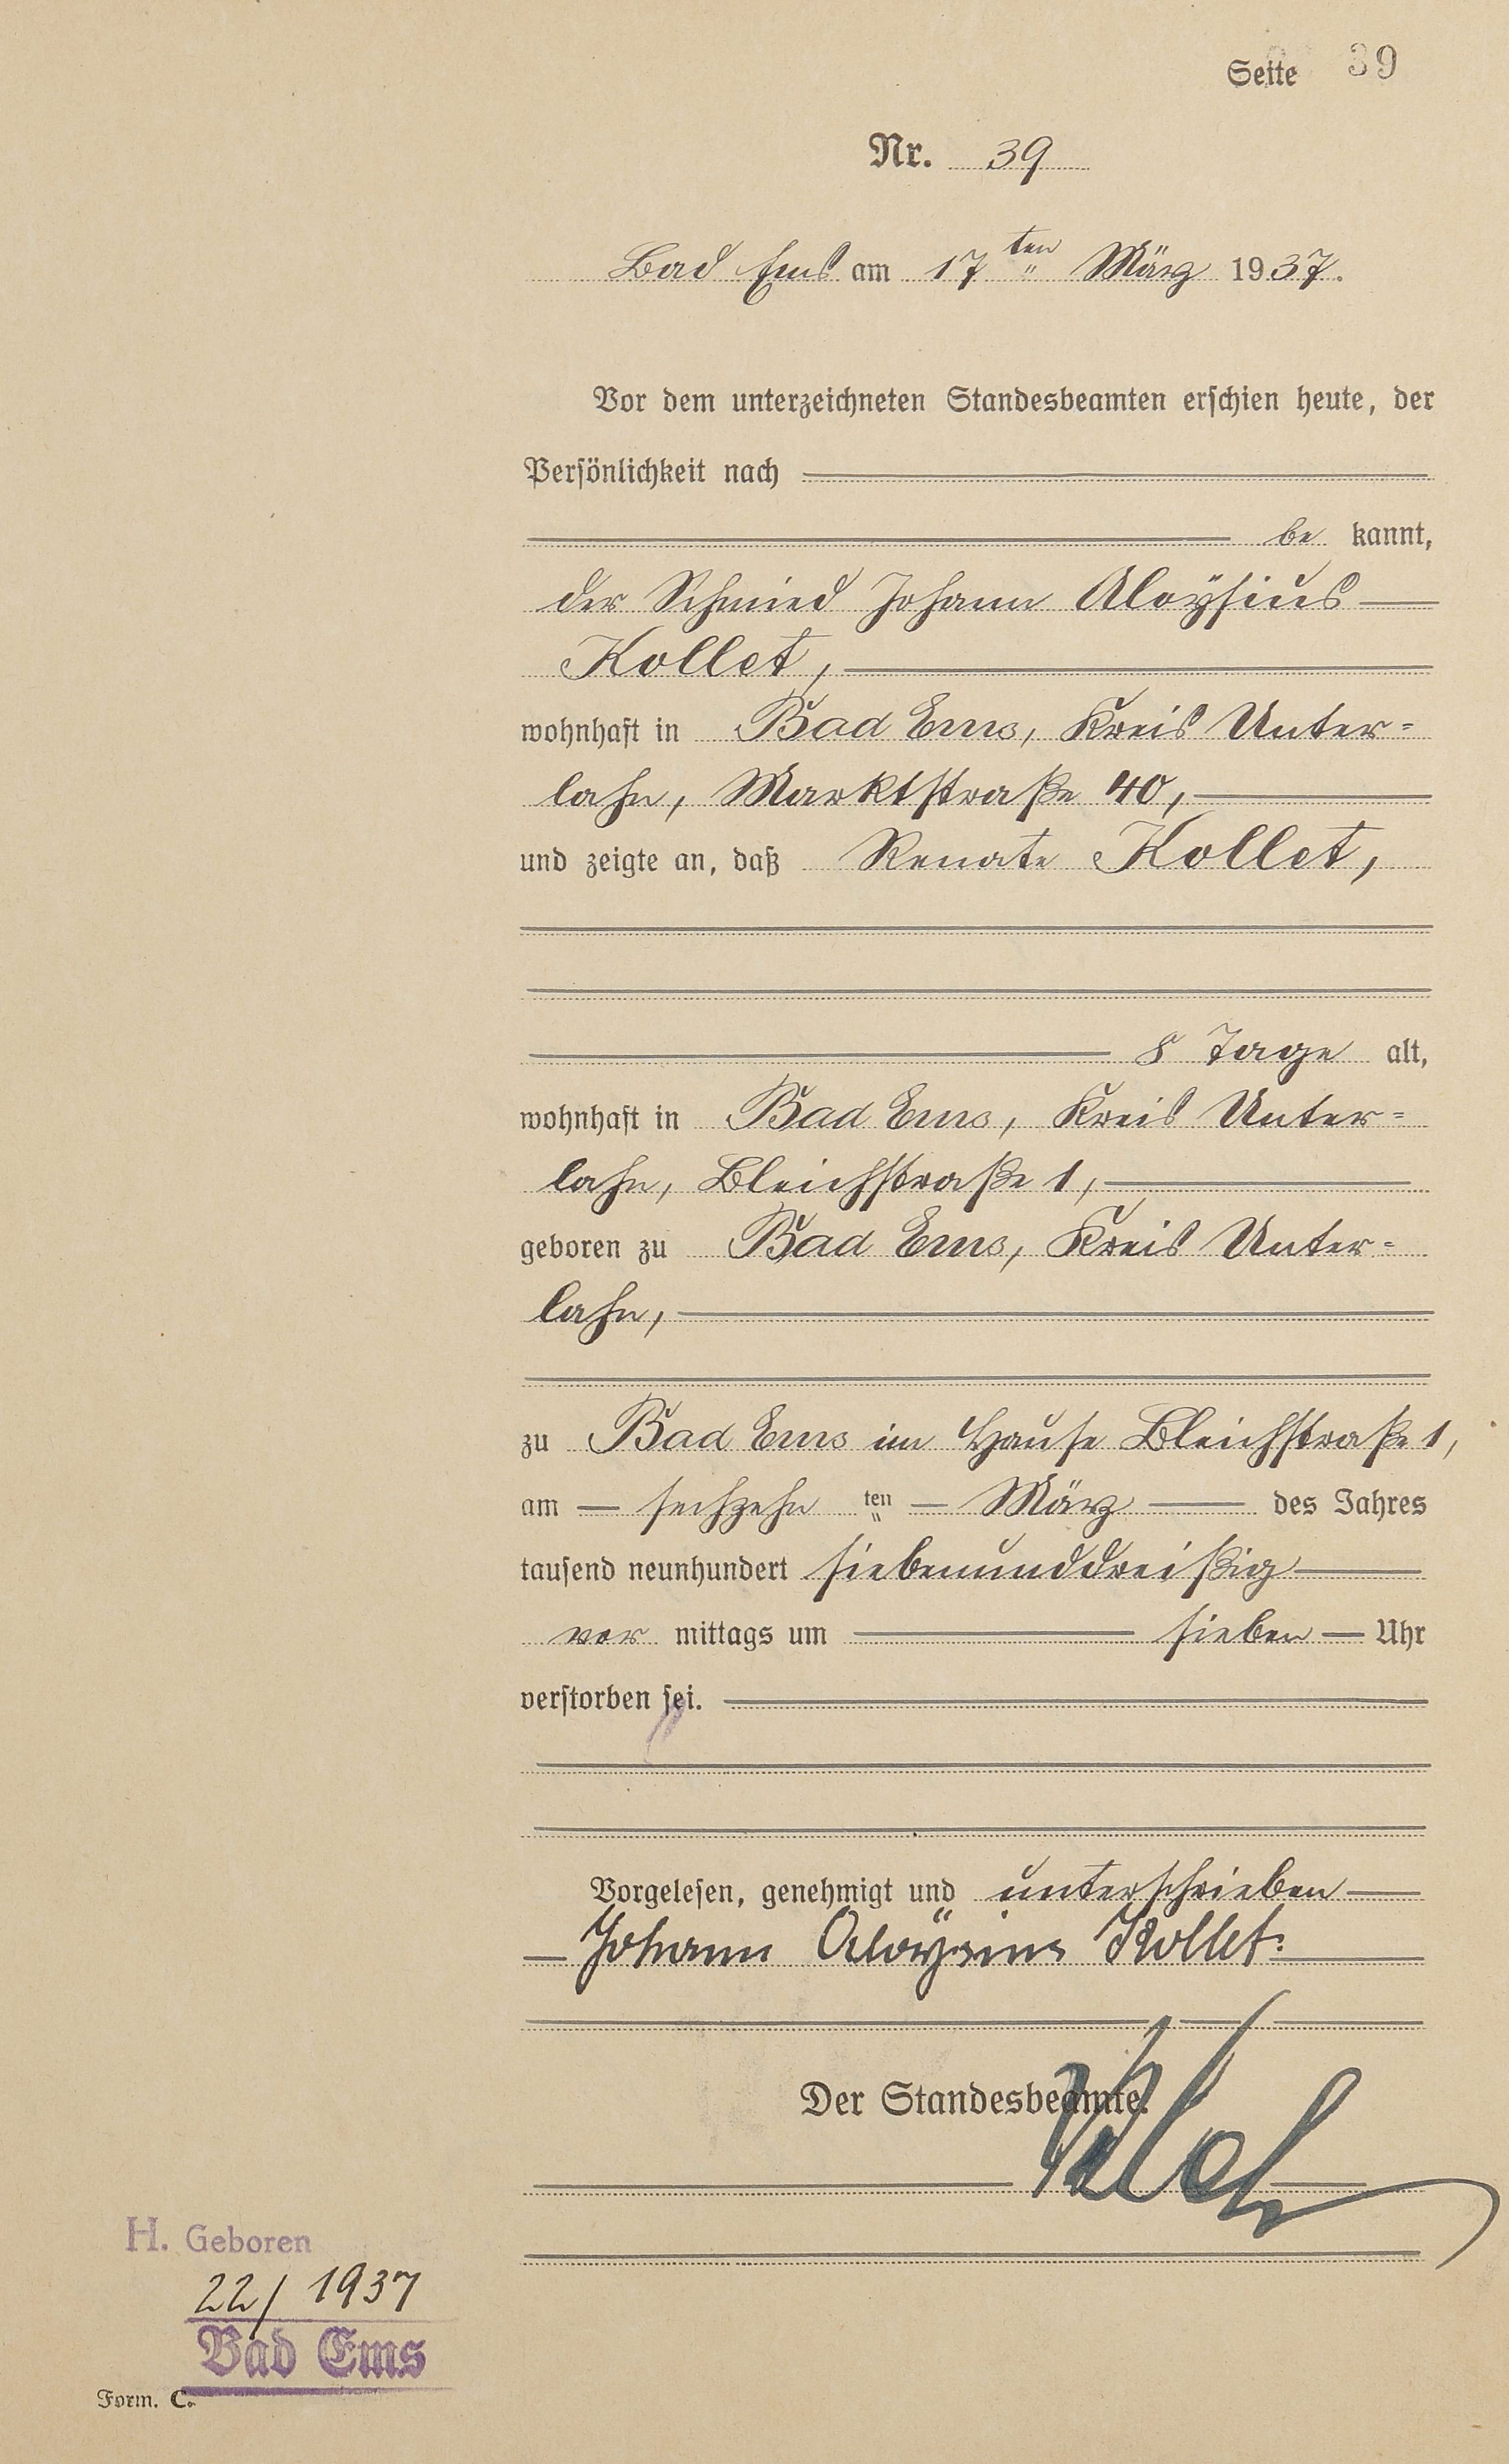 Seite 39
Nr. 39
Bad Ems am 17ten März 1937.
Vor dem unterzeichneten Standesbeamten erschien heute, der
Persönlichkeit nach
be kannt,
der Schmied Johann Aloÿsius
Kollet,
wohnhaft in Bad Ems, Kreis Unter-
lahn, Marktstraße 40,
und zeigte an, daß Renate Kollet,
8 Tage alt,
wohnhaft in Bad Ems, Kreis Unter-
lahn, Bleichstraße 1,
geboren zu Bad Ems, Kreis Unter-
lahn,
zu Bad Ems im Hause Bleichstraße 1,
am sechzehn ten März des Jahres
tausend neunhundert siebenunddreißig
vor mittags um sieben Uhr
verstorben sei.
Vorgelesen, genehmigt und unterschrieben
Johann Aloÿsius Kollet.
Der Standesbeamte.
H. Geboren
22/1937
Bad Ems
Form. C.